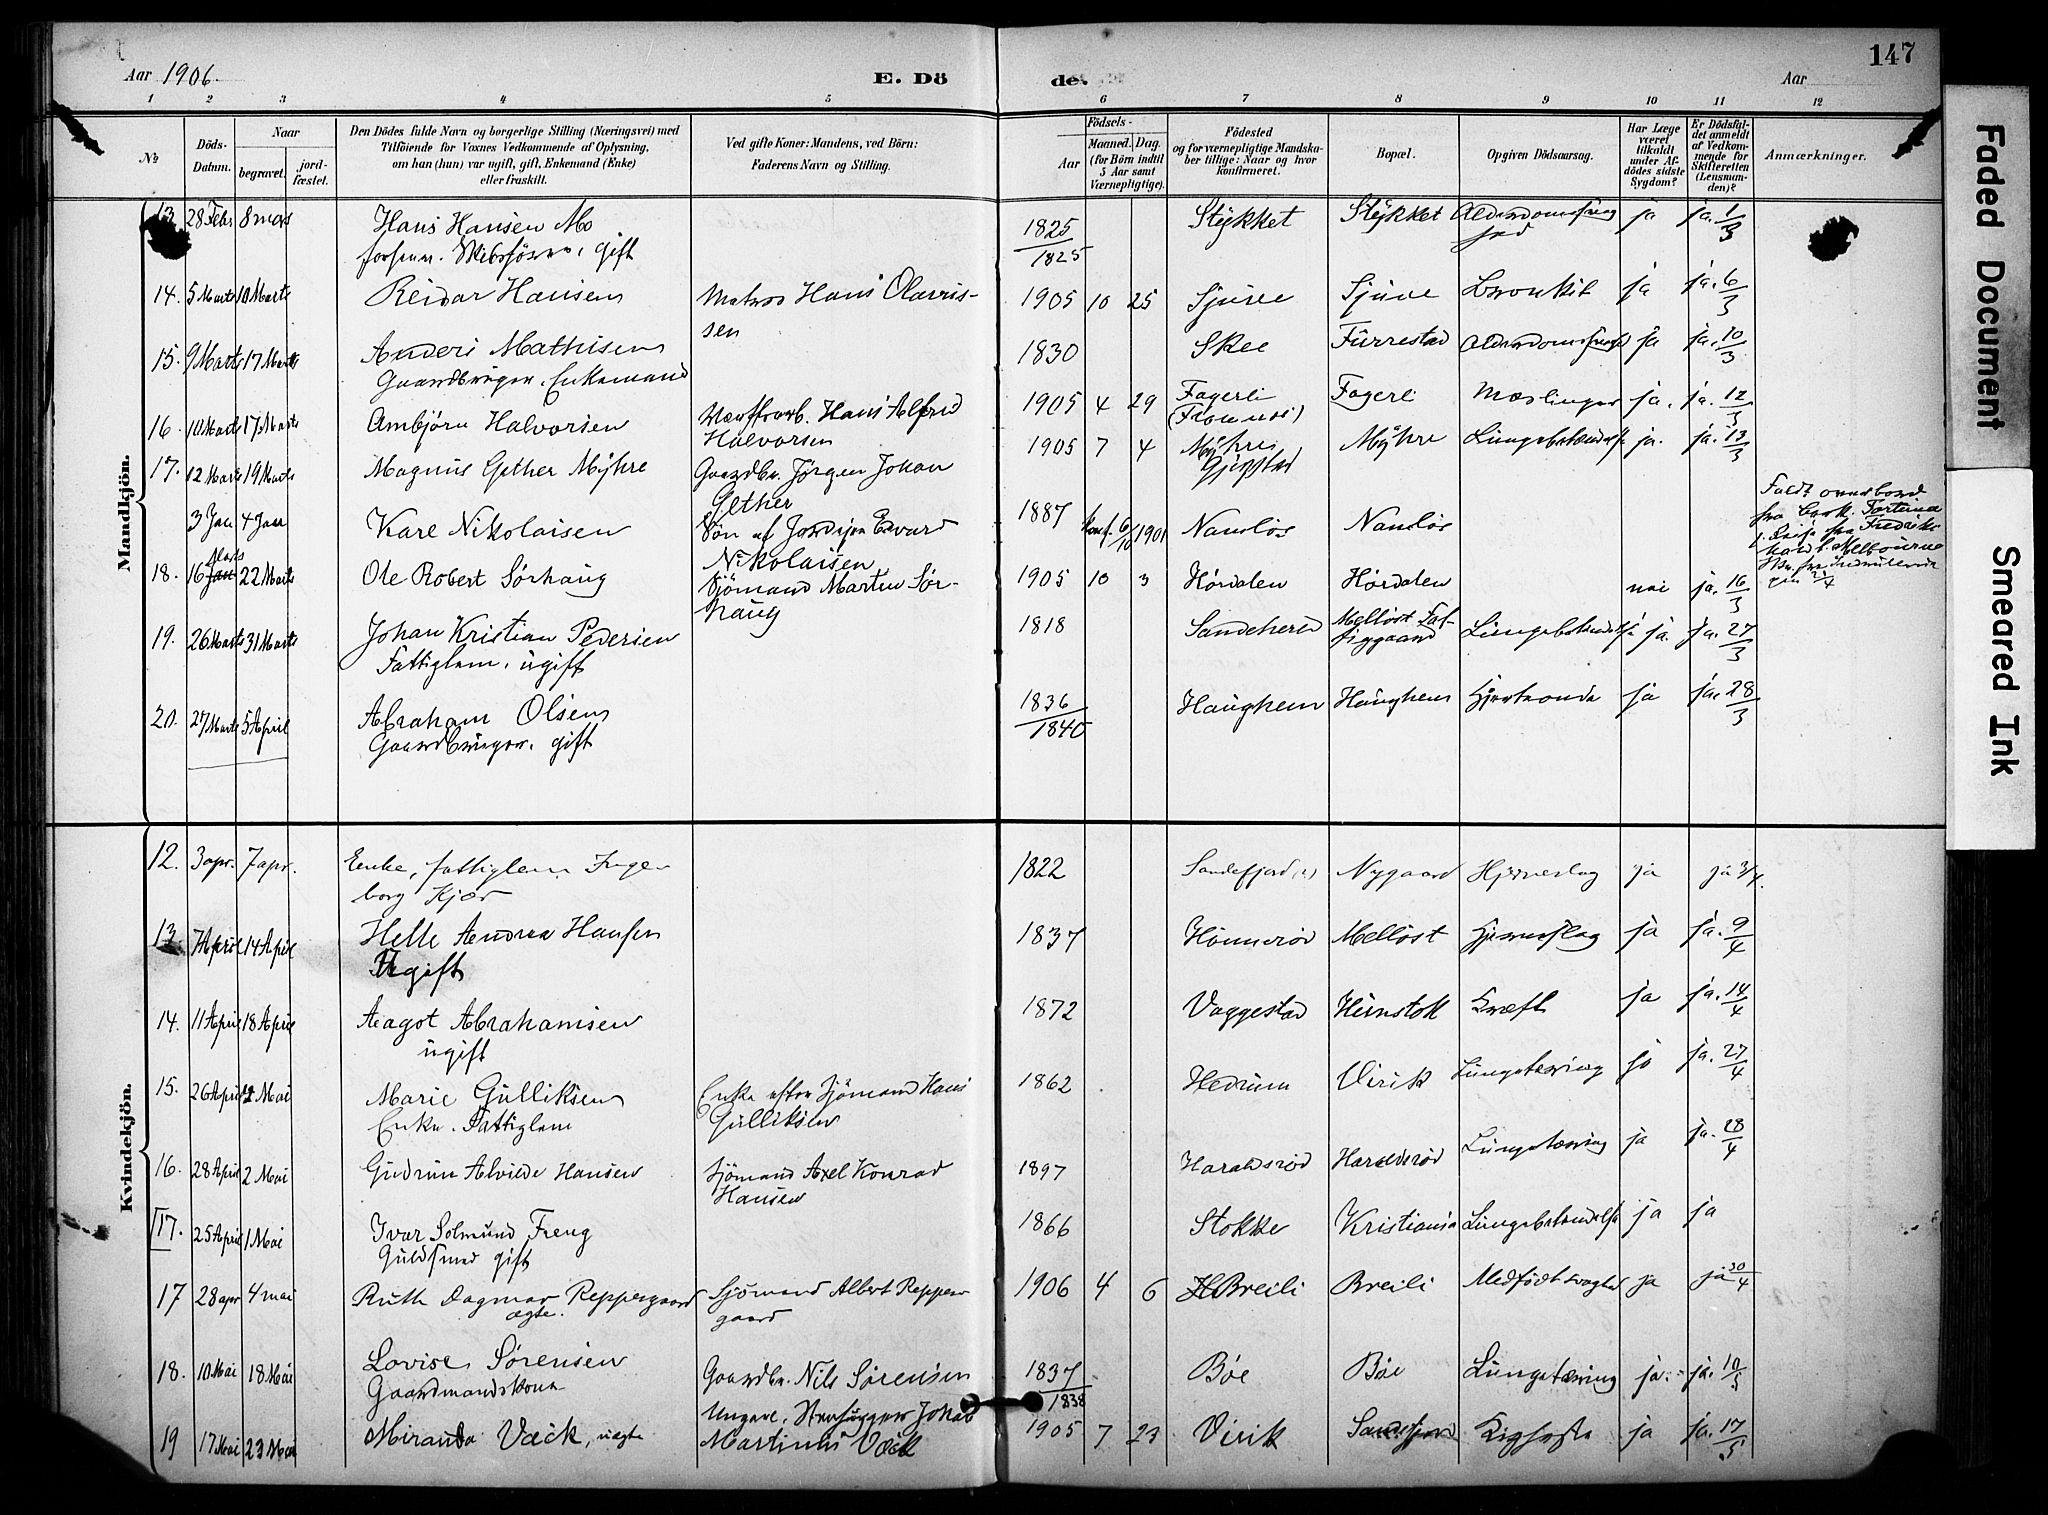 147
Aar 1906. E. Dö de. Aar
1 2 3 4 5 6 7 8 9 10 11 12
№
Döds-Datum.
Naar
begravet.
jord-fæstet.
Den Dödes fulde Navn og borgerlige Stilling (Næringsvei) med
Tilföiende for Voxnes Vedkommende af Oplysning,
om han (hun) var ugift, gift, Enkemand (Enke)
eller fraskilt.
Ved gifte Koner: Mandens, ved Börn:
Faderens Navn og Stilling.
Födsels-
Aar
Maaned. Dag.
(for Börn indtil
5 Aar samt
Værnepligtige).
Födested
og for værnepligtige Mandska-
ber tillige: Naar og hvor
konfirmeret.
Bopæl.
Opgiven Dödsaarsag.
Har Læge
været
tilkaldt
under Af-
dödes sidste
Sygdom?
Er Dödsfal-
det anmeldt
af Vedkom-
mende for
Skifteretten
(Lensman-
den)?
Anmærkninger.
Mandkjön.
13 28 Febr 8 mars Hans Hansen Mo 1825 Stykket Stykket ja ja. 1/3
gift 1825
14. 5 Marts 10 Marts Reidar Hansen Matros Hans Olavis- 1905 10 25 Sjuve Sjuve Bronkit ja ja. 6/3
sen
15. 9 Marts 17 Marts Anders Mathisen 1830 Skee Furrestad ja ja. 10/3
Gaardbruger. Enkemand
16. 10 Marts 17 Marts Ambjörn Halvorsen Hans Alfred 1905 4 29 Fagerli Fagerli Mæslinger ja. ja. 12/3
Halvorsen
17. 12 Marts 19 Marts Magnus Gether Myhre Gaardbr. Jørgen Johan 1905 7 4 Myhre Myhre Lungebetændelse ja. ja. 13/3
Gether Gjipstad
3 Jan 4 Jan Kare Nikolaisen Sön af Edvard 1887 konf. 6/10 1901 Namløs Namløs Faldt overbord
Nikolaisen fra Fredrik-
Melbourne
18. 16 Marts 22 Marts Ole Robert Sørhaug Sjömand Martin Sør- 1905 10 3 Hørdalen Hørdalen nei ja. 16/3
haug
19. 26 Marts 31 Marts Johan Kristian Pedersen 1818 Sandeherred Melløst Fat- Lungebetændelse ja. ja. 27/3
Fattiglem. ugift tiggaard
20. 27 Marts 5 April Abraham Olsen 1836 Haughem Haughem Hjerteonde ja ja. 28/3
Gaardbruger. gift 1840
Kvindekjön.
12. 3 apr. 7 apr. Enke, fattiglem Inge- 1822 Sandefjord Nygaard Hjerneslag ja ja 3/4.
borg Kjær
13 7 April 14 April Helle Andrea Hansen 1837 Hönnerød Melløst Hjerneslag ja ja. 9/4
Ugift
14. 11 April 18 April Aagot Abrahamsen 1872 Vaggestad Heimstok Kræft ja ja. 14/4
ugift
15. 26 April 2 Mai Marie Gulliksen Enke efter Sjömand Hans 1862 Hedrum Virik Lungetæring ja ja. 27/4
Enke. Fattiglem Gulliksen
16. 28 April 2 Mai Gudrun Alvilde Hansen Sjömand Axel Konrad 1897 Haraldsrød Haraldsrød Lungetæring ja ja. 28/4
Hansen
17. 25 April 1 Mai Ivar Solmund Freng 1866 Stokke Kristiania Lungebetændelse ja ja
Guldsmed gift
17 28 apr 4 mai Ruth Dagmar Reppergaard Sjömand Albert Repper- 1906 4 6 Breili Breili Medfödt svaghed ja ja 30/4
ægte. gaard
18. 10 Mai 18 Mai Lovise Sørensen Gaardbr. Nils Sørensen 1837 Bøe Bøe Lungetæring ja. ja. 10/5
Gaardmandskone 1838
19 17 Mai 23 Mai Miranda Væck, uægte Ungkarl, Stenhugger Johan 1905 7 23 Virik Sandefjord Kighoste ja ja. 17/5
Martinus Væck
Faded Document
Smeared Ink